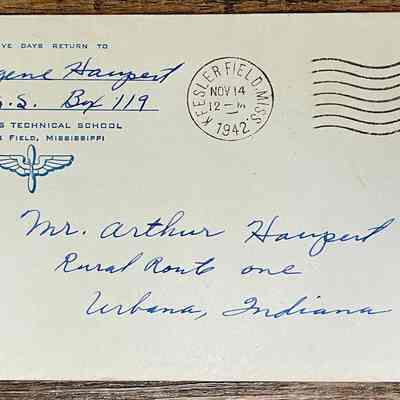 VE DAYS RETURN TO
gene Haupert
.S. Box 119
S TECHNICAL SCHOOL
FIELD, MISSISSIPPI
KEESLER FIELD, MISS.
NOV 14
12-M
1942
Mr. Arthur Haupert
Rural Route one
Urbana, Indiana